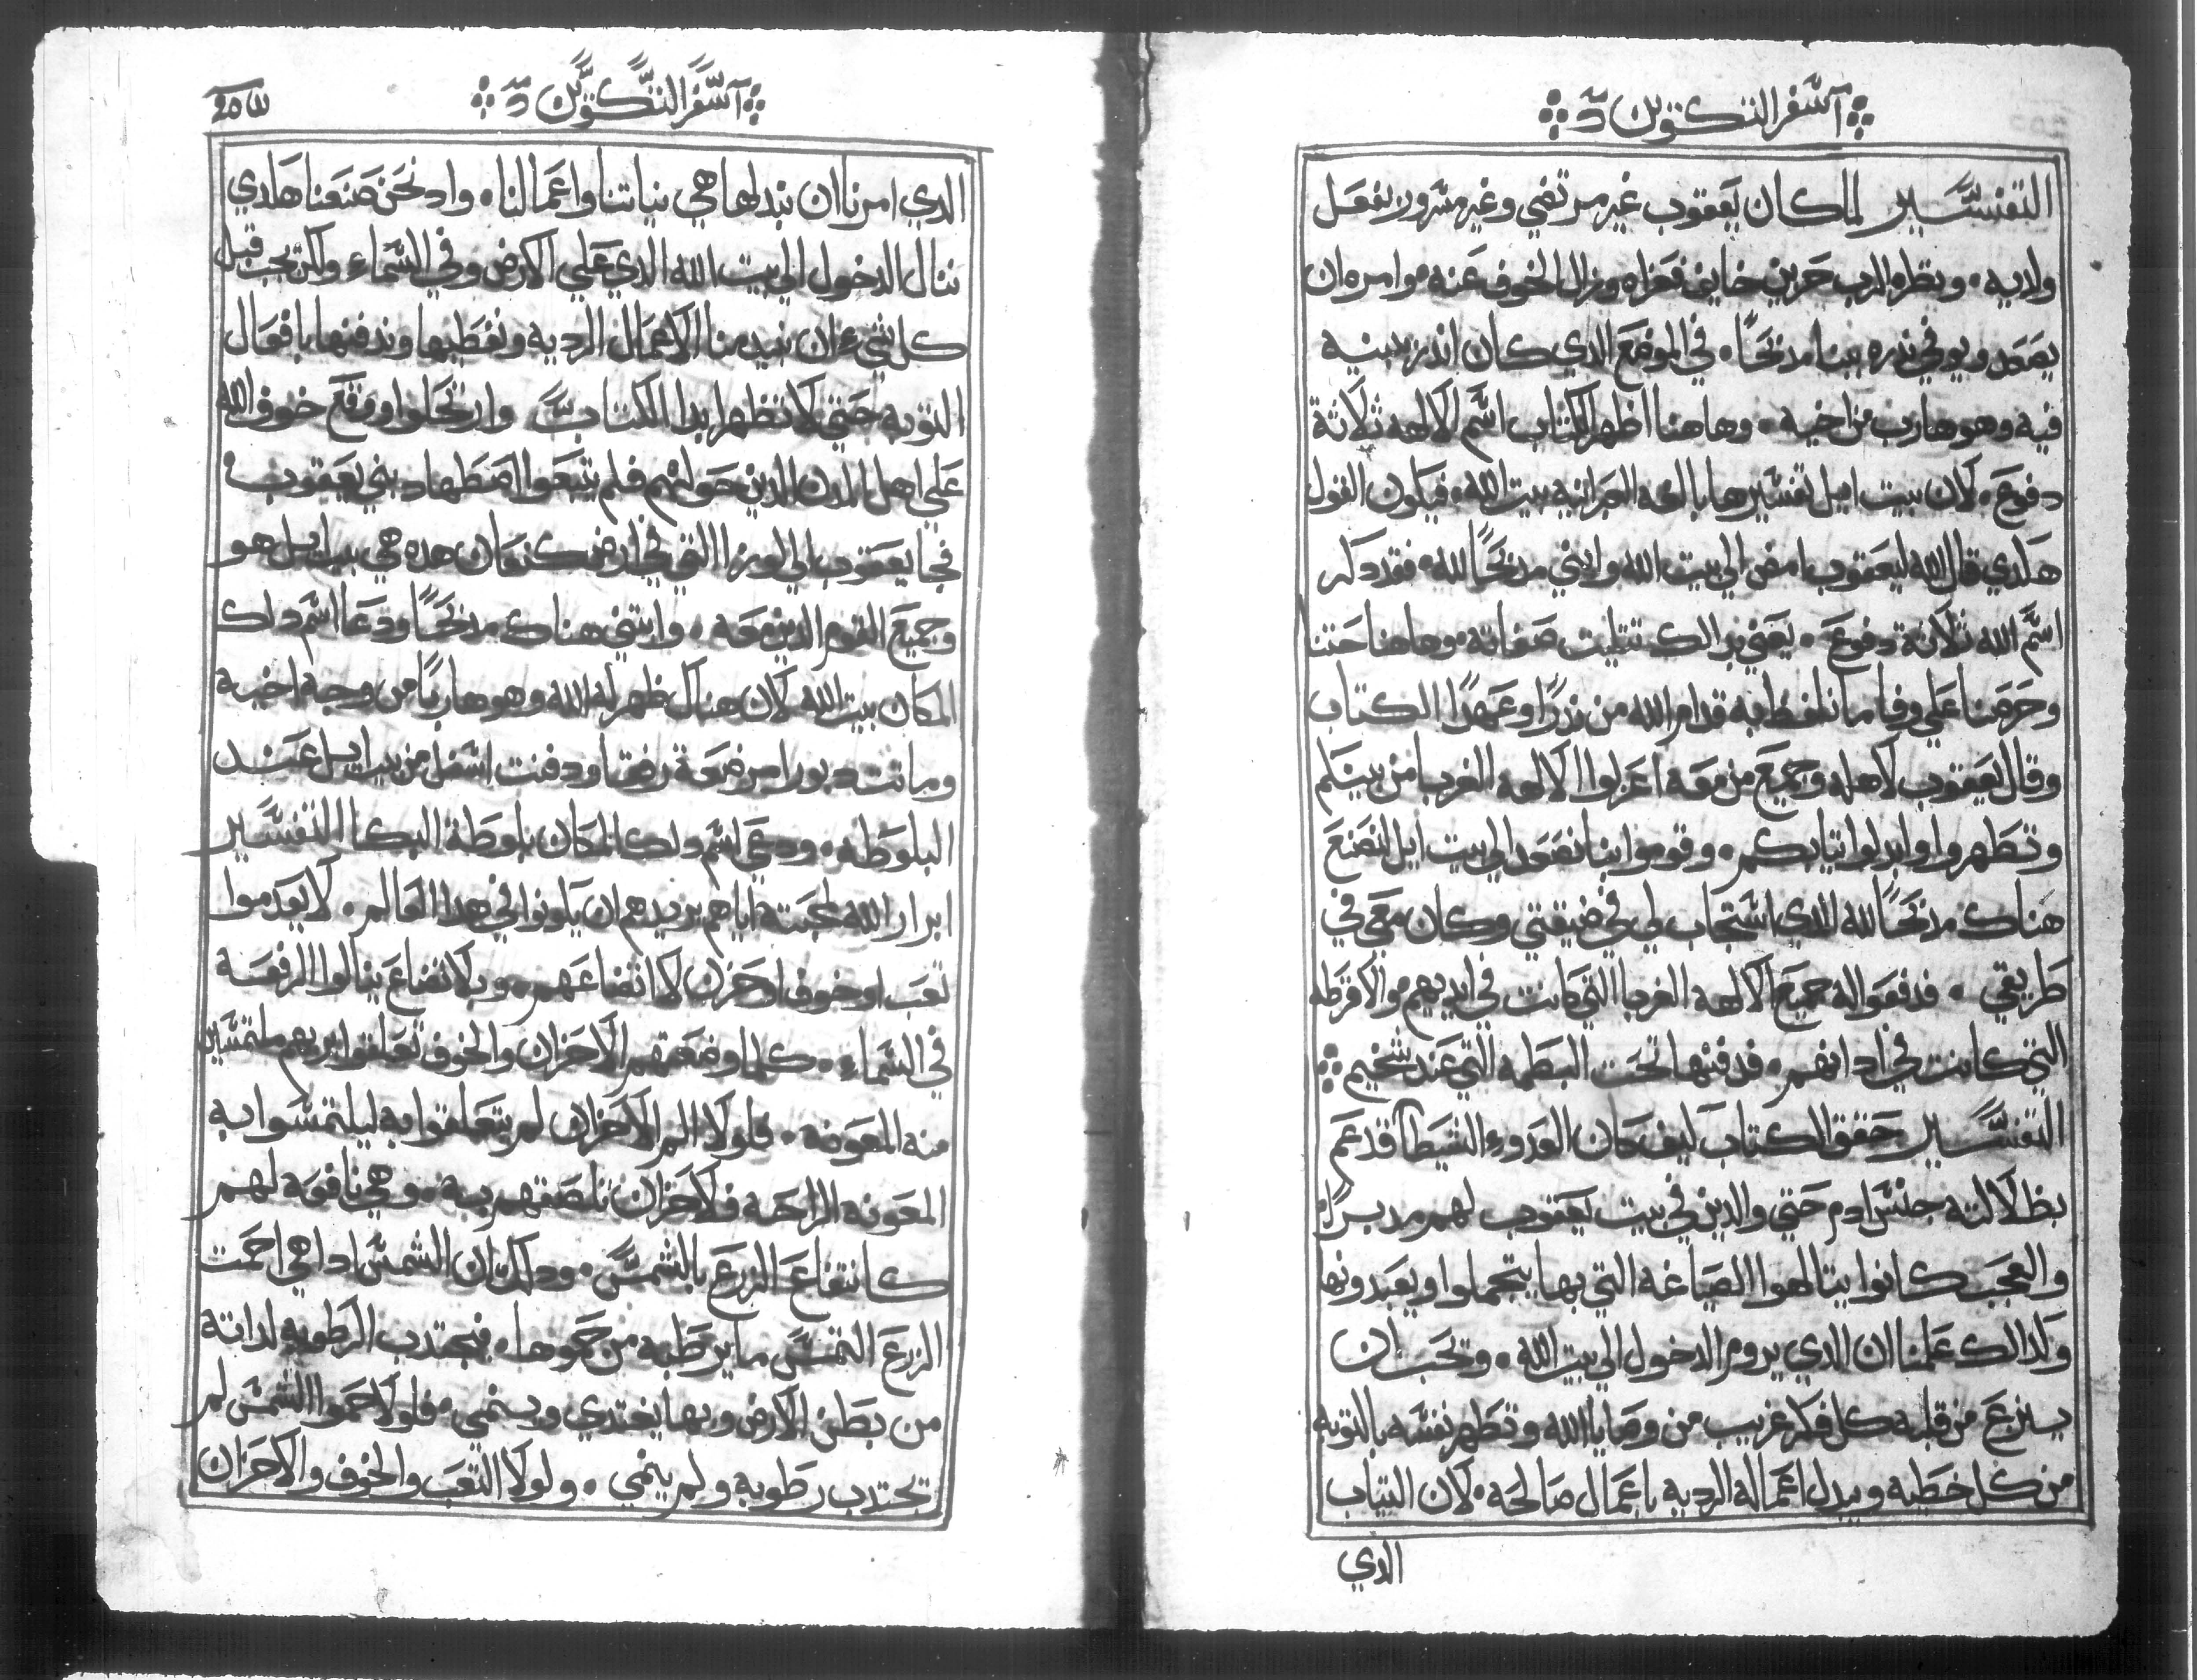 آسفر التكوين
التفسير لما كان يعقوب غير مرتضي وغير مسرور بفعل
ولاديه ونظره الرب حزين خايف فعزاه وزال الخوف عنه وامره ان
يصعد ويوفي ندره يبنا مدبحًا في الموضع الدي كان اندر يبنيه
فيه وهو هارب من اخيه وهاهنا اظهر الكتاب اسم الالهه ثلاثة
دفوع لان بيت ايل تفسيرها بالغه العبرانيه بيت الله فيكون القول
هكدي قال الله ليعقوب امضي الي بيت الله وابني مدبحًا لله فقد دكر
اسم الله ثلاثة دفوع يعني بدالك تتليت صفاته وهاهنا حتنا
وحرصنا علي وفا ما نلفظ به قدام الله من ندرًا وعهدًا الكتاب
وقال يعقوب لاهله وجميع من معه اعزلوا الالهه الغربا من بينكم
وتطهروا وابدلوا تيابكم وقوموا بنا نصعد الي بيت ايل لنصنع
هناك مدبحًا لله الدي استجاب لي في ضيقتي وكان معي في
طريقي فدفعوا له جميع الالهه الغربا التي كانت في ايديهم والاقرطه
التي كانت في ادانهم فدفنها تحت البطمه التي عند شخيم
التفسير حقق الكتاب كيف كان العدو الشيطان قد عم
بظلالته جنس ادم حتي والدين في بيت يعقوب لهم مدبرًا
والعجب كانوا يتالهوا الصياغه التي بها يتجملوا ويعبدونها
ولدالك علمنا ان الدي يروم الدخول الي بيت الله وتحب ان
ينزع من قلبه كل فكر غريب من وصايا الله وتطهر نفسه بالتوبه
من كل خطيه ويبدل اعماله الرديه باعمال صالحه لان التياب
الدي
آسفر التكوين
الدي امرنا ان نبدلها هي نياتنا واعمالنا وادا نحن صنعنا هكدي
ننال الدخول الي بيت الله الدي علي الارض وفي السماء ولكن يجب قبل
كل شيء ان نبيد منا الاعمال الرديه ونغطيها وندفنها بافعال
التوبه حتي لا تظهر ابدا الكتاب وارتحلوا ووقع خوف الله
علي اهل المدن الدين حولهم فلم يتبعوا اضطهاد بني يعقوب
فجا يعقوب الي لوزا التي في ارض كنعان هده هي بيت ايل هو
وجميع القوم الدين معه وابتني هناك مدبحًا ودعا اسم دلك
المكان بيت الله لان هناك ظهر له الله وهو هاربًا من وجه اخيه
وماتت دبورا مرضعة رفقا ودفنت اسفل من بيت ايل عند
البلوطه ودعي اسم دلك المكان بلوطة البكا التفسير
ابرار الله لمحبته اياهم يريدهم ان يكونوا في هدا العالم لا يعدموا
تعب او خوف او حزن لاتضاعهم وبالاتضاع ينالوا الرفعه
في السماء كلما وضعتهم الاحزان والخوف تعلقوا بربهم ملتمسين
منه المعونه فلولا الم الاحزان لم يتعلقوا به ليلتمسوا به
المعونه الراحه فالاحزان تلصقهم به وهي نافعه لهم
كانتفاع الزرع بالشمس ودلك ان الشمس ادا هي احمت
الزرع التمس ما يرطبه من حموها فيجتدب الرطوبه لداته
من بطن الارض وبها يغتدي وينمي فلولا حموا الشمس لم
تجتدب رطوبه ولم ينمي ولولا التعب والخوف والاحزان